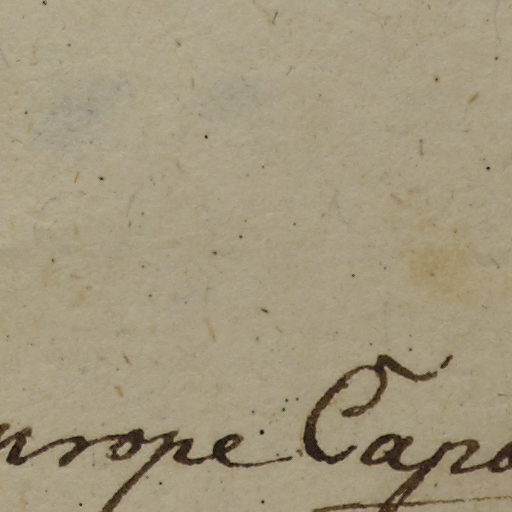 urope Capo